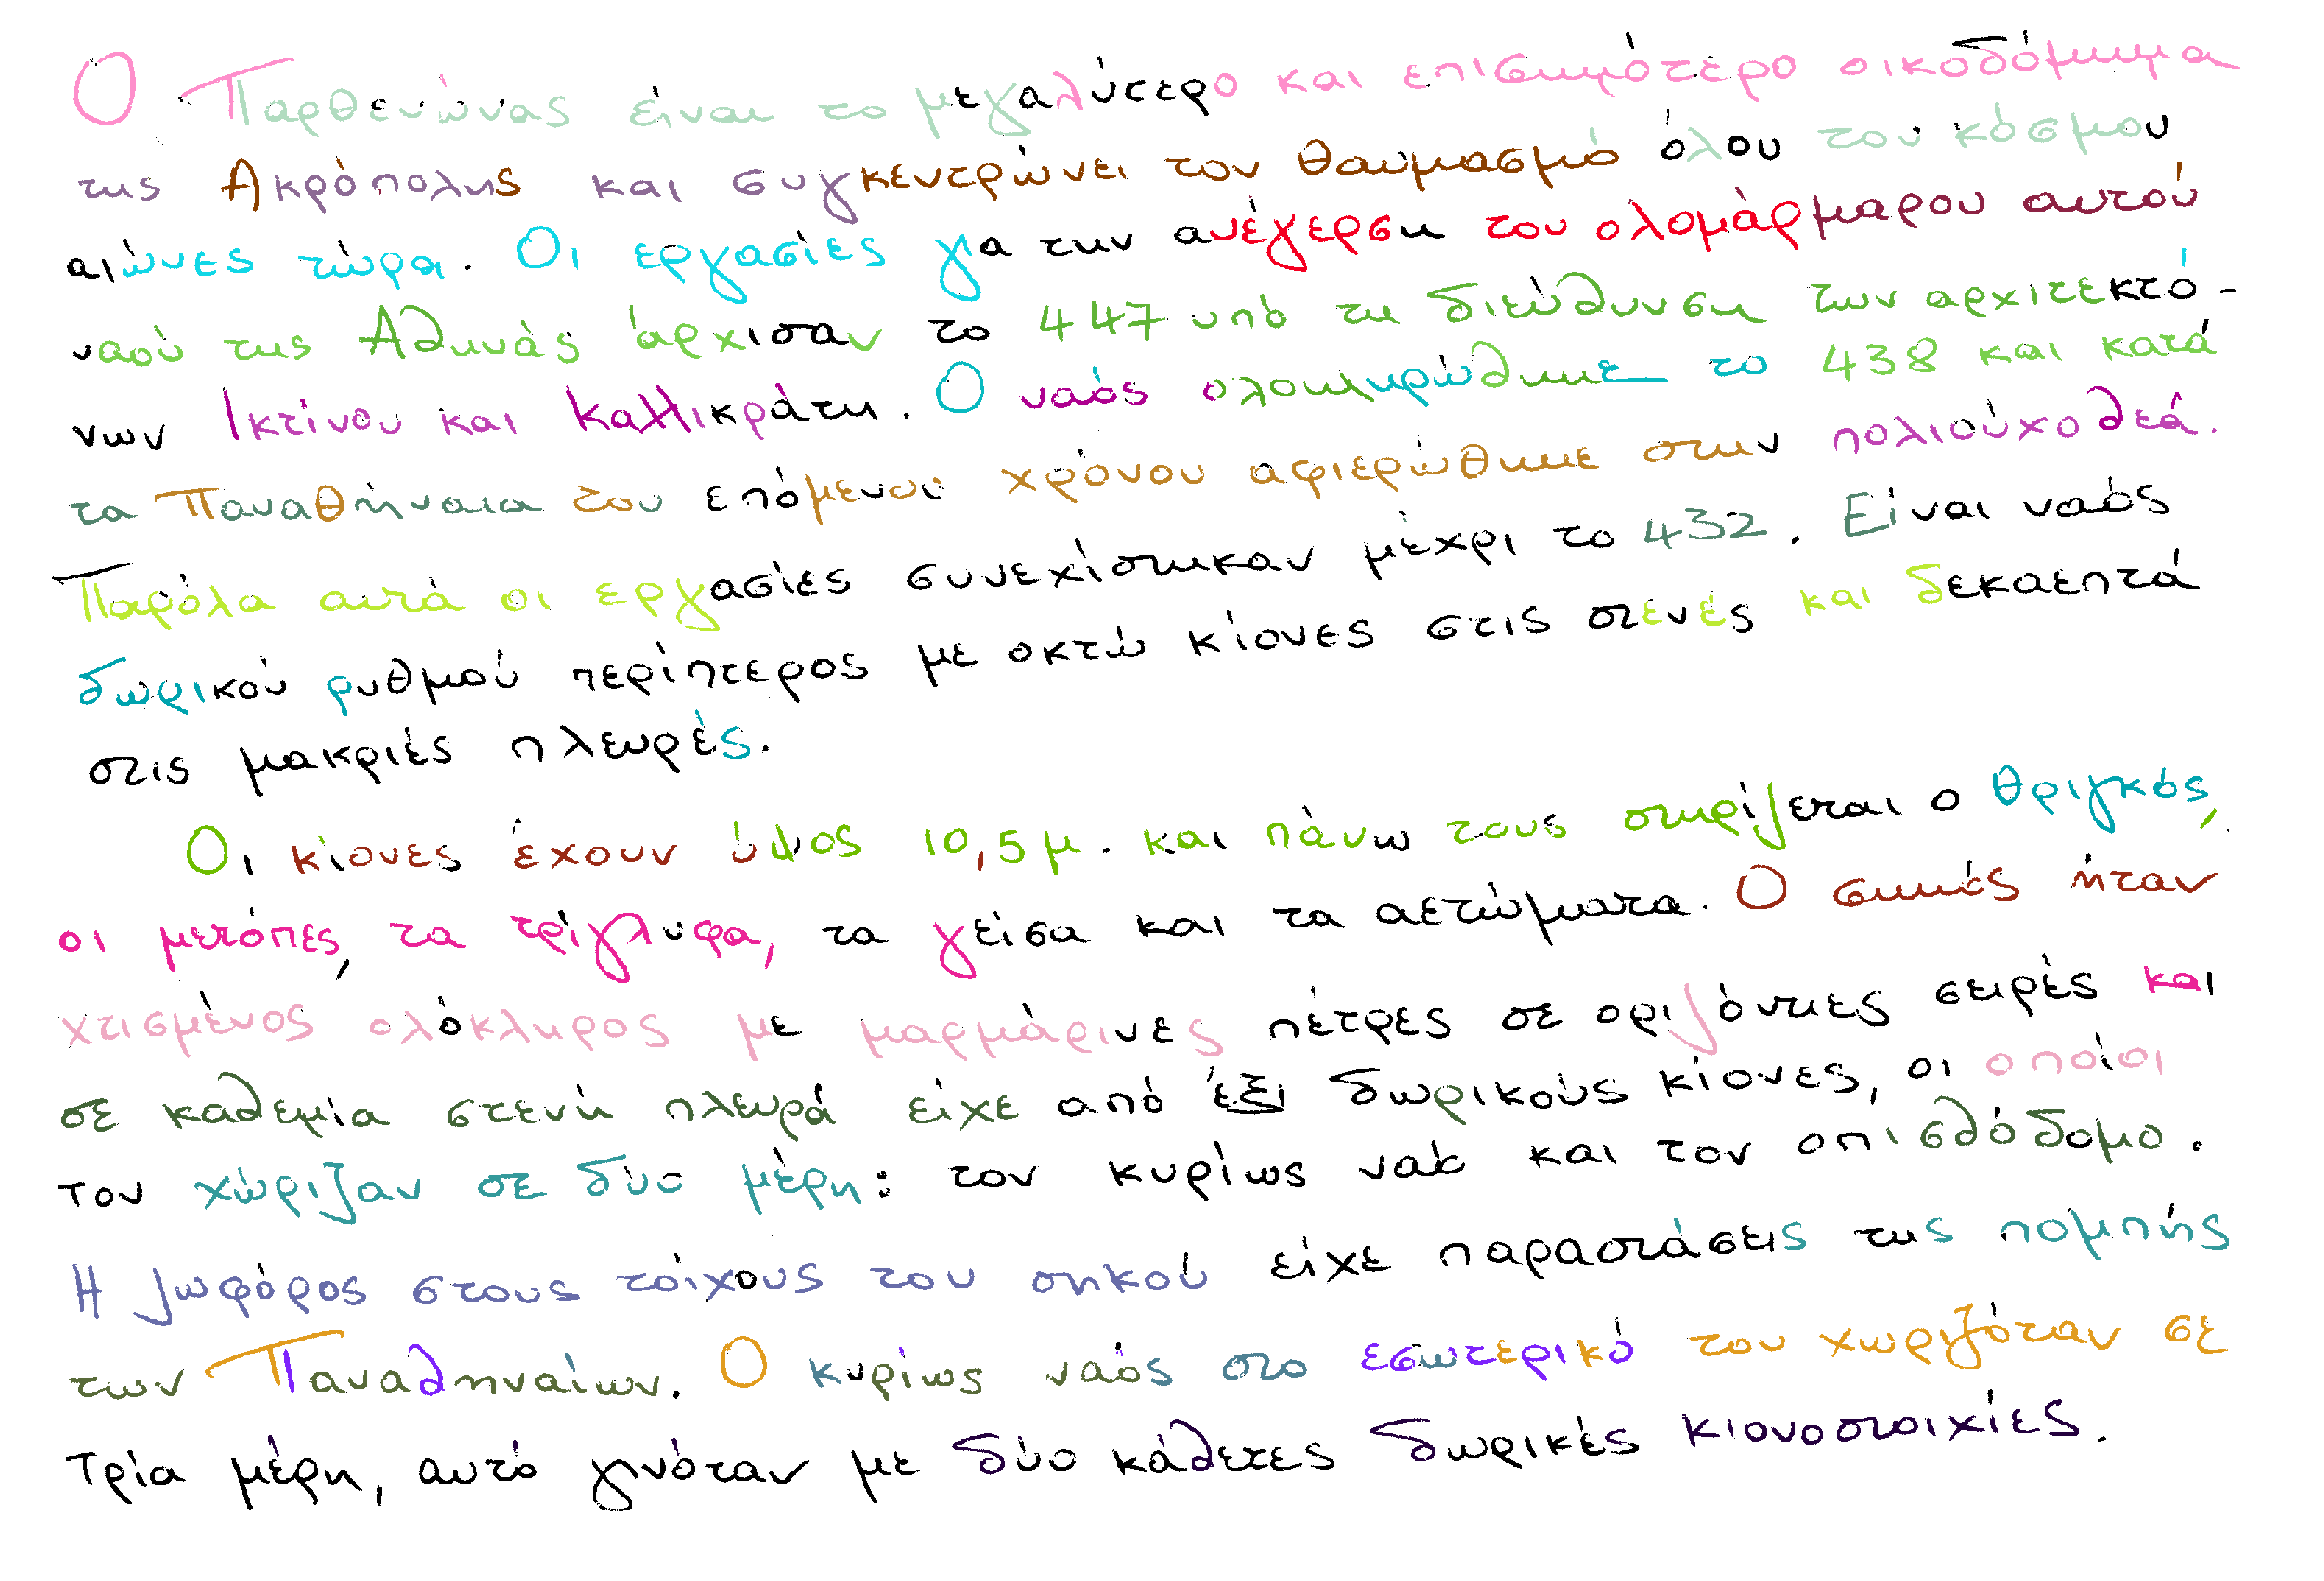 Ο Παρθενώνας είναι το μεγαλύτερο και επισημότερο οικοδόμημα
της Ακρόπολης και συγκεντρώνει τον θαυμασμό όλου του κόσμου
αιώνες τώρα. Οι εργασίες για την ανέγερση του ολομάρμαρου αυτού
ναού της Αθηνάς άρχισαν το 447 υπό τη διεύθυνση των αρχιτεκτό-
νων Ικτίνου και Καλλικράτη. Ο ναός ολοκληρώθηκε το 438 και κατά
τα Παναθήναια του επόμενου χρόνου αφιερώθηκε στην πολιούχο θεά.
Παρόλα αυτά οι εργασίες συνεχίστηκαν μέχρι το 432. Είναι ναός
δωρικού ρυθμού περίπτερος με οκτώ κίονες στις στενές και δεκαεπτά
στις μακριές πλευρές.
Οι κίονες έχουν ύψος 10,5 μ. και πάνω τους στηρίζεται ο θριγκός,
οι μετόπες, τα τρίγλυφα, τα γείσα και τα αετώματα. Ο σηκός ήταν
χτισμένος ολόκληρος με μαρμάρινες πέτρες σε οριζόντιες σειρές και
σε καθεμία στενή πλευρά είχε από έξι δωρικούς κίονες, οι οποίοι
τον χώριζαν σε δύο μέρη: τον κυρίως ναό και τον οπισθόδομο.
Η ζωφόρος στους τοίχους του σηκού είχε παραστάσεις της πομπής
των Παναθηναίων. Ο κυρίως ναός στο εσωτερικό του χωριζόταν σε
τρία μέρη, αυτό γινόταν με δύο κάθετες δωρικές κιονοστοιχίες.